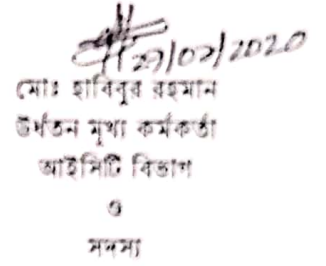 ২৭/০২/২০২০
মোঃ হাবিবুর রহমান
উর্ধতন মূখ্য কর্মকর্তা
আইসিটি বিভাগ
ও
সদস্য